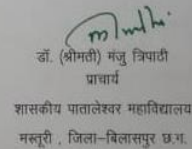 डॉ. (श्रीमती) मंजु त्रिपाठी
प्राचार्य
शासकीय पातालेश्वर महाविद्यालय
मस्तूरी , जिला–बिलासपुर छ.ग.